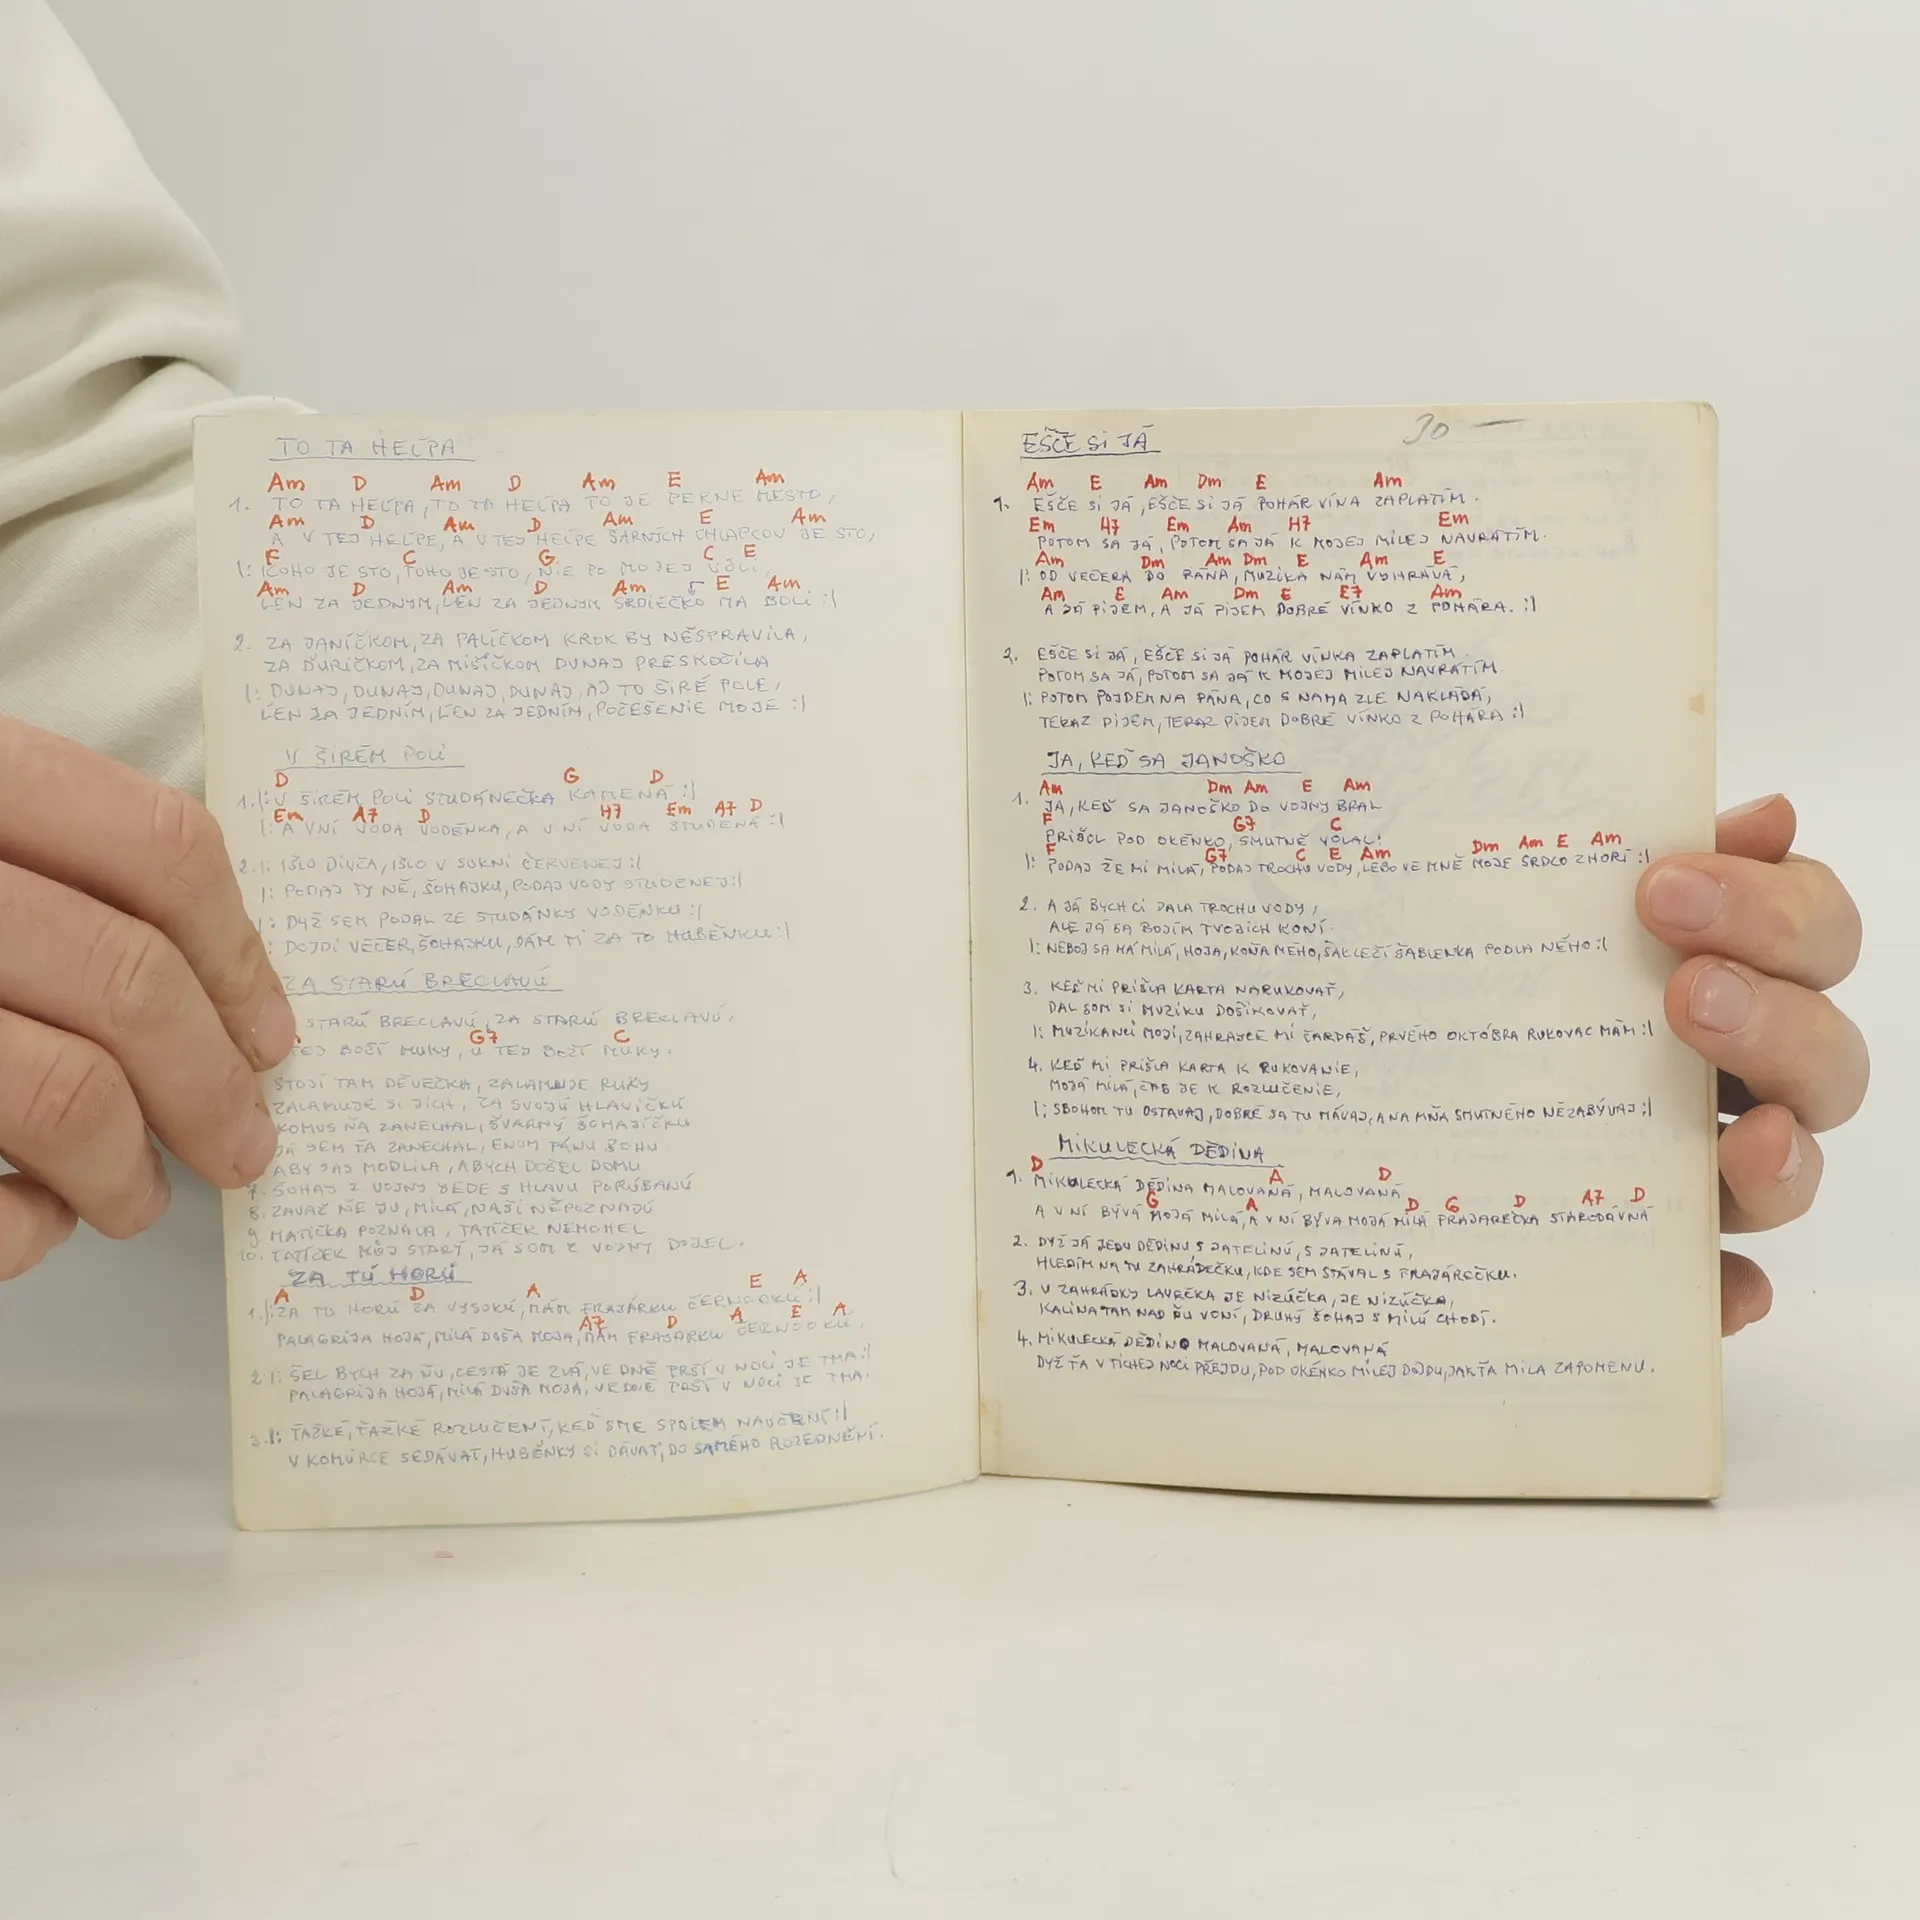 TO TA HEĽPA
Am D Am D Am E Am
1. TO TA HEĽPA, TO TA HEĽPA TO JE PEKNE MESTO,
Am D Am D Am E Am
A V TEJ HEĽPE, A V TEJ HEĽPE ŠARNÍCH CHLAPCOV JE STO,
F C G C E
|: KOHO JE STO, TOHO JE STO, NIE PO MOJEJ VÔLI,
Am D Am D Am E Am
LEN ZA JEDNYM, LEN ZA JEDNYM SRDIEČKO MA BOLI :|
2. ZA JANÍČKOM, ZA PALÍČKOM KROK BY NĚSPRAVILA,
ZA ĎURIČKOM, ZA MIŠÍČKOM DUNAJ PRESKOČILA
|: DUNAJ, DUNAJ, DUNAJ, DUNAJ, AJ TO ŠIRÉ POLE,
ĽEN ZA JEDNÍM, ĽEN ZA JEDNÍM, POČEŠENIE MOJE :|
V ŠIRÉM POLI
D G D
1. |: V ŠIRÉM POLI STUDÁNEČKA KAMENÁ :|
Em A7 D H7 Em A7 D
|: A V NÍ VODA VODĚNKA, A V NÍ VODA STUDENÁ :|
2. |: IŠLO DIVČA, IŠLO V SUKNI ČERVENEJ :|
|: PODAJ TY NĚ, ŠOHAJKU, PODAJ VODY STUDENEJ :|
|: DYŽ SEM PODAL ZE STUDÁNKY VODĚNKU :|
: DOJDI VEČER, ŠOHAJKU, DÁM TI ZA TO HUBĚNKU :|
ZA STARÚ BRECLAVÚ
STARÚ BRECLAVÚ, ZA STARÚ BRECLAVÚ,
G7 C
TEJ BOŽÍ MUKY, U TEJ BOŽÍ MUKY.
STOJÍ TAM DĚVEČKA, ZALAMUJE RUKY
ZALAMUJE SI JICH, ZA SVOJÚ HLAVIČKÚ
KOMUS ŇA ZANECHAL, ŠVARNÝ ŠOHAJÍČKU
JÁ SEM ŤA ZANECHAL, ENOM PÁNU BOHU
ABY SAS MODLILA, ABYCH DOŠEL DOMU
7. ŠOHAJ Z VOJNY JEDE S HLAVU PORÚBANÚ
8. ZAVAŽ NĚ JU, MILÁ, NAŠI NĚPOZNAJÚ
9. MATIČKA POZNALA, TATÍČEK NEMOHEL
10. TATÍČEK MÔJ STARÝ, JÁ SOM Z VOJNY DOJEL.
ZA TÚ HORÚ
A D A E A
1. |: ZA TU HORÚ ZA VYSOKÚ, MÁM FRAJÁRKU ČERNOOKÚ :|
A7 D A E A
PALAGRIJA HOJA, MILÁ DUŠA MOJA, MÁM FRAJARKU ČERNOOKU.
2. |: ŠEL BYCH ZA ŇU, CESTÁ JE ZLÁ, VE DNĚ PRŠÍ V NOCI JE TMA :|
PALAGRIJA HOJA, MILÁ DUŠA MOJA, VE DNĚ PRŠÍ V NOCI JE TMA.
3. |: ŤAŽKÉ, ŤAŽKÉ ROZLUČENÍ, KEĎ SME SPOLEM NAUČENÍ :|
V KOMŮRCE SEDÁVAT, HUBĚNKY SI DÁVAT, DO SAMÉHO ROZEDNĚNÍ.
30 —
EŠČE SI JÁ
Am E Am Dm E Am
1. EŠČE SI JÁ, EŠČE SI JÁ POHÁR VÍNA ZAPLATÍM.
Em H7 Em Am H7 Em
POTOM SA JÁ, POTOM SA JÁ K MOJEJ MILEJ NAVRATÍM.
Am Dm Am Dm E Am E
|: OD VEČERA DO RÁNA, MUZIKA NÁM VYHRÁVÁ,
Am E Am Dm E E7 Am
A JÁ PIJEM, A JÁ PIJEM DOBRÉ VÍNKO Z POHÁRA. :|
2. EŠČE SI JÁ, EŠČE SI JÁ POHÁR VÍNKA ZAPLATÍM
POTOM SA JÁ, POTOM SA JÁ K MOJEJ MILEJ NAVRATÍM.
|: POTOM POJDEM NA PÁNA, CO S NAMA ZLE NAKLÁDÁ,
TERAZ PIJEM, TERAZ PIJEM DOBRÉ VÍNKO Z POHÁRA :|
JA, KEĎ SA JANOŠKO
Am Dm Am E Am
1. JÁ, KEĎ SA JANOŠKO DO VOJNY BRAL
F G7 C
PRIŠOL POD OKÉNKO, SMUTNĚ VOLAL:
F G7 C E Am Dm Am E Am
|: PODAJ ŽE MI MILÁ, PODAJ TROCHU VODY, LEBO VE MNĚ MOJE SRDCO ZHORÍ :|
2. A JÁ BYCH CI DALA TROCHU VODY,
ALE JÁ SA BOJÍM TVOJICH KONÍ.
|: NEBOJ SA MÁ MILÁ, HOJA, KOŇA MÉHO, ŠAK LEŽÍ ŠABLENKA PODLA NÉHO :|
3. KEĎ MI PRIŠLA KARTA NARUKOVAŤ,
DAL SOM SI MUZIKU DOŠIKOVAŤ,
|: MUZIKANCI MOJI, ZAHRAJCE MI ČARDÁŠ, PRVÉHO OKTÓBRA RUKOVAC MÁM :|
4. KEĎ MI PRIŠLA KARTA K RUKOVANIE,
MOJÁ MILÁ, ČAS JE K ROZLUČENIE,
|: SBOHOM TU OSTAVAJ, DOBRÉ SA TU MÁVAJ, A NA MŇA SMUTNÉHO NĚZABÝVAJ :|
MIKULECKÁ DĚDINA
D A D
1. MIKULECKÁ DĚDINA MALOVANÁ, MALOVANÁ
G A D G D A7 D
A V NÍ BÝVÁ MOJÁ MILÁ, A V NÍ BÝVA MOJÁ MILÁ FRAJAREČKA STARODÁVNÁ
2. DYŽ JÁ JEDU DĚDINU, S JATELINÚ, S JATELINÚ,
HLEDÍM NA TU ZAHRÁDEČKU, KDE SEM STÁVAL S FRAJÁREČKU.
3. V ZAHRÁDKY LAVEČKA JE NIZÚČKA, JE NIZÚČKA,
KALINA TAM NAD ŇU VONÍ, DRUHÝ ŠOHAJ S MILÚ CHODÍ.
4. MIKULECKÁ DĚDINO MALOVANÁ, MALOVANÁ
DYŽ ŤA V TICHEJ NOCI PŘEJDU, POD OKÉNKO MILEJ DOJDU, JAK ŤA MILA ZAPOMENU.